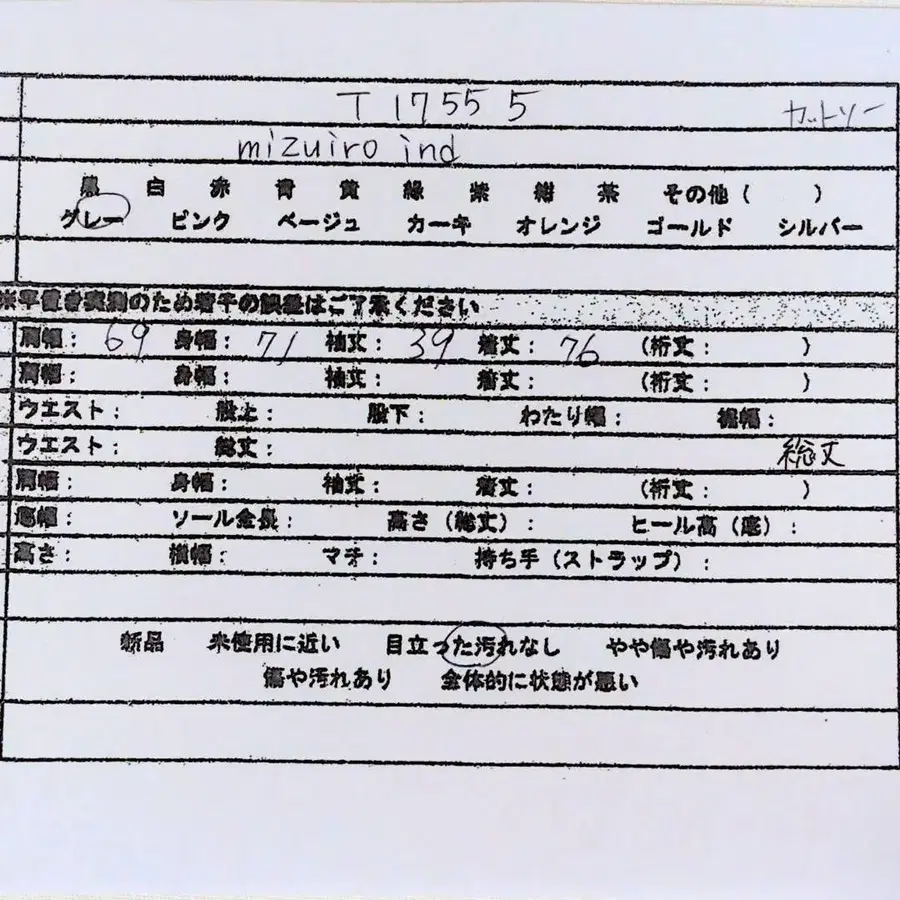 T 17555 カットソー
mizuiro ind
黒 白 赤 青 黄 緑 紫 紺 茶 その他（ ）
グレー ピンク ベージュ カーキ オレンジ ゴールド シルバー
※平置き実測のため若干の誤差はご了承ください
肩幅： 69 身幅： 71 袖丈： 39 着丈： 76 （裄丈： ）
肩幅： 身幅： 袖丈： 着丈： （裄丈： ）
ウエスト： 股上： 股下： わたり幅： 裾幅：
ウエスト： 総丈： 総丈
肩幅： 身幅： 袖丈： 着丈： （裄丈： ）
底幅： ソール全長： 高さ（総丈）： ヒール高（底）：
高さ： 横幅： マチ： 持ち手（ストラップ）：
新品 未使用に近い 目立った汚れなし やや傷や汚れあり
傷や汚れあり 全体的に状態が悪い